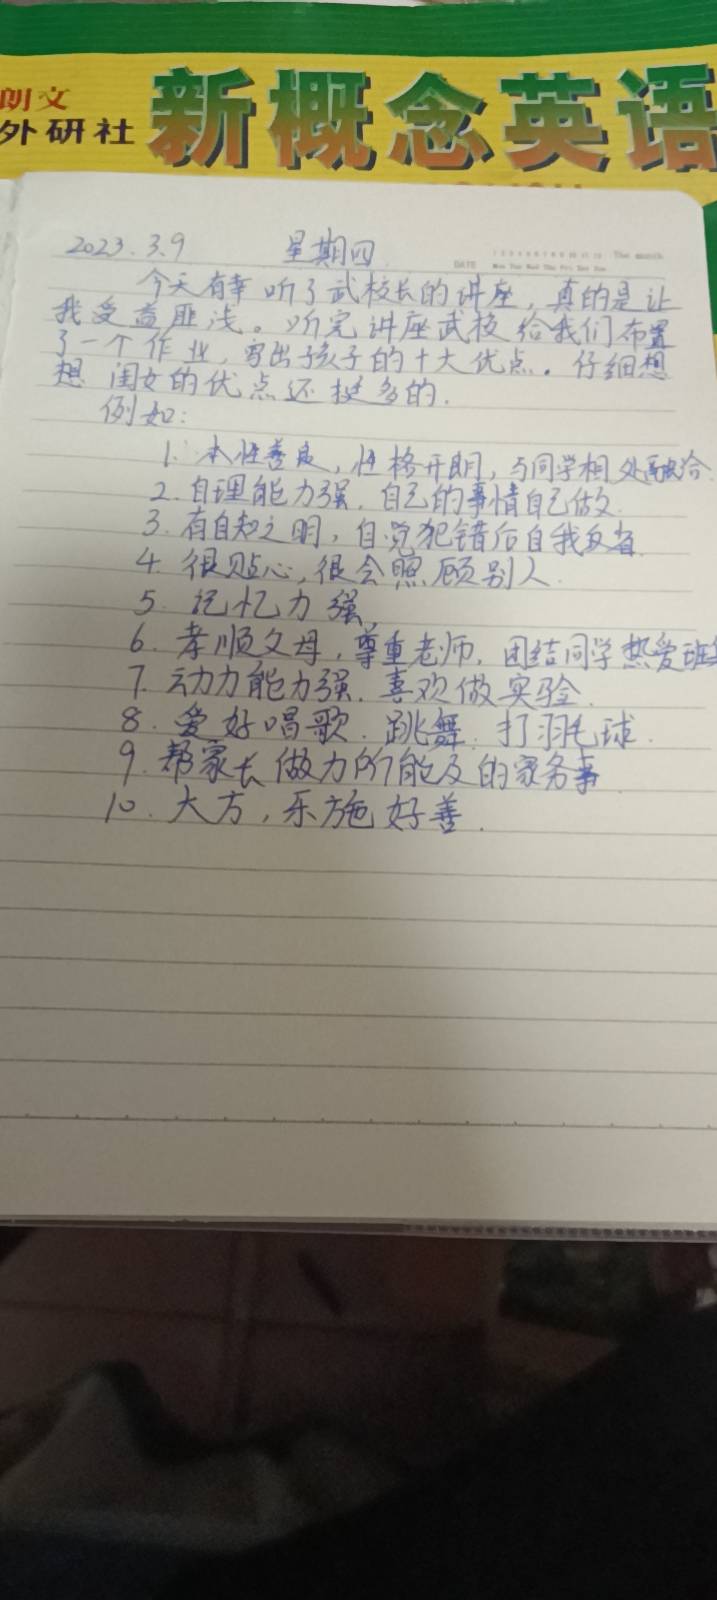 朗文
外研社
新概念英语
2023.3.9 星期四
DATE
Mon Tue Wed Thu Fri Sat Sun
The month
今天有幸听了武校长的讲座，真的是让
我受益匪浅。听完讲座武校给我们布置
了一个作业，写出孩子的十大优点。仔细想
想闺女的优点还挺多的.
例如：
1. 本性善良，性格开朗，与同学相处融洽
2. 自理能力强. 自己的事情自己做.
3. 有自知之明，自觉犯错后自我反省.
4. 很贴心，很会照顾别人.
5. 记忆力强，
6. 孝顺父母，尊重老师. 团结同学热爱班
7. 动力能力强. 喜欢做实验.
8. 爱好唱歌. 跳舞. 打羽毛球.
9. 帮家长做力所能及的家务事
10. 大方，乐施好善.